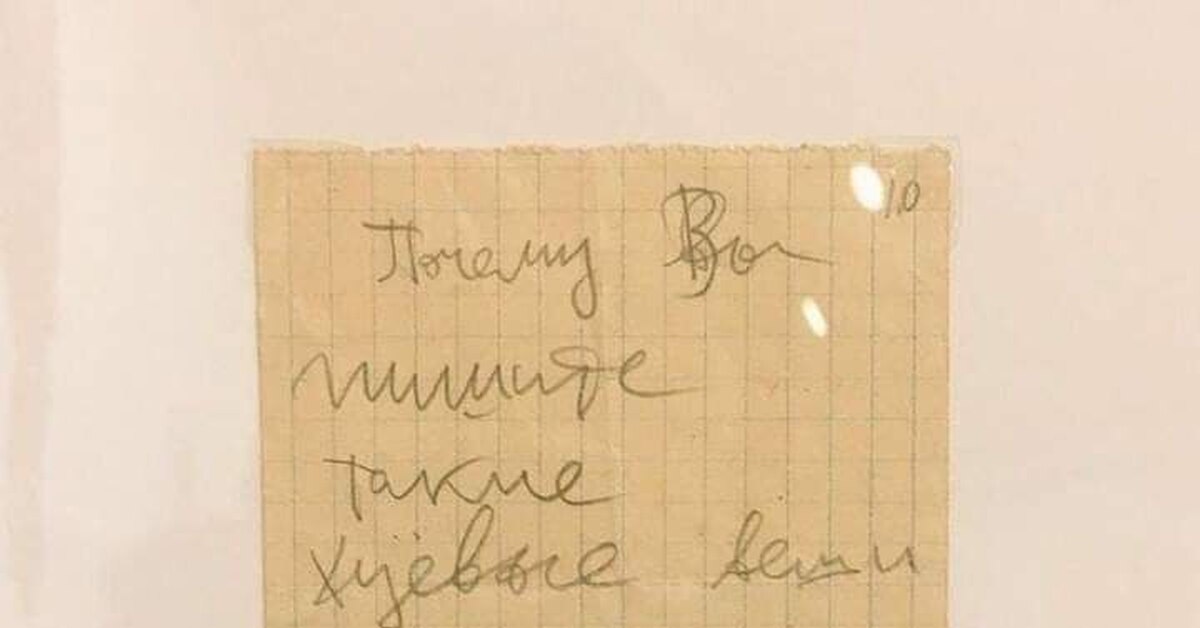 10
Почему Вы
пишите
такие
хуёвые вещи